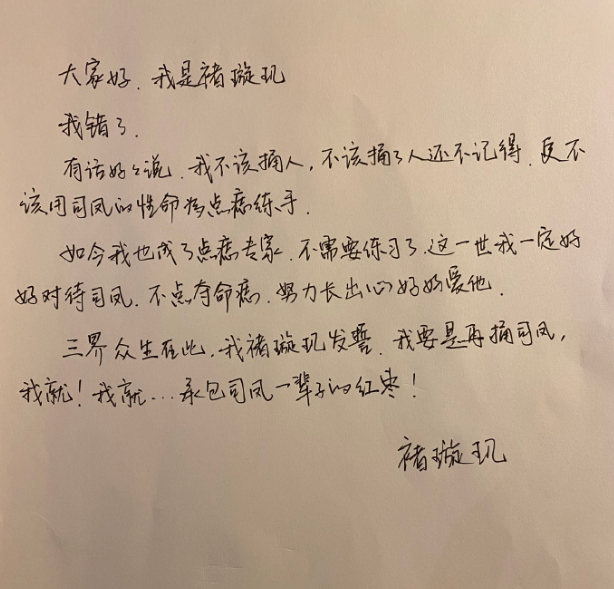 大家好、我是褚璇玑
我错了.
有话好好说、我不该捅人，不该捅了人还不记得、更不
该用司凤的性命为点痣练手.
如今我也成了点痣专家、不需要练习了、这一世我一定好
好对待司凤、不点夺命痣、努力长出心好好爱他.
三界众生在此、我褚璇玑发誓、我要是再捅司凤，
我就！我就…承包司凤一辈子的红枣！
褚璇玑